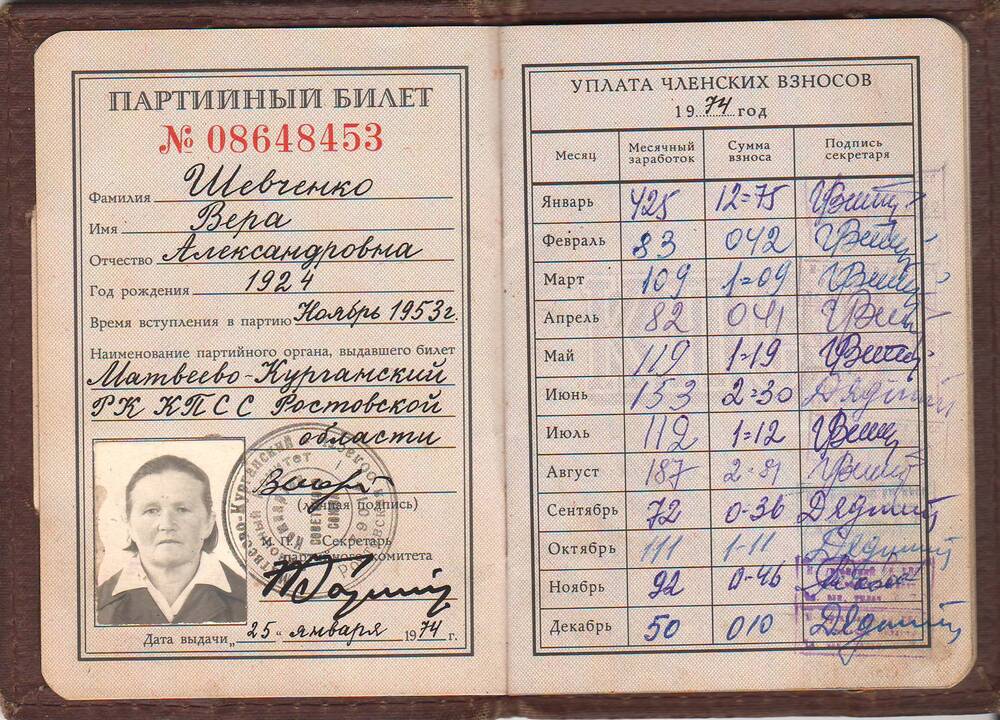 ПАРТИЙНЫЙ БИЛЕТ
№ 08648453
Фамилия Шевченко
Имя Вера
Отчество Александровна
Год рождения 1924
Время вступления в партию Ноябрь 1953г.
Наименование партийного органа, выдавшего билет
Матвеево-Курганский
РК КПСС Ростовской
области
(личная подпись)
М. П. Секретарь
партийного комитета
Дата выдачи „25“ января 1974 г.
УПЛАТА ЧЛЕНСКИХ ВЗНОСОВ
1974 год
Месяц Месячный заработок Сумма взноса Подпись секретаря
Январь 425 12=75
Февраль 83 042
Март 109 1=09
Апрель 82 041
Май 119 1-19
Июнь 153 2=30
Июль 112 1=12
Август 187 2=81
Сентябрь 72 0-36
Октябрь 111 1-11
Ноябрь 92 0-46
Декабрь 50 010